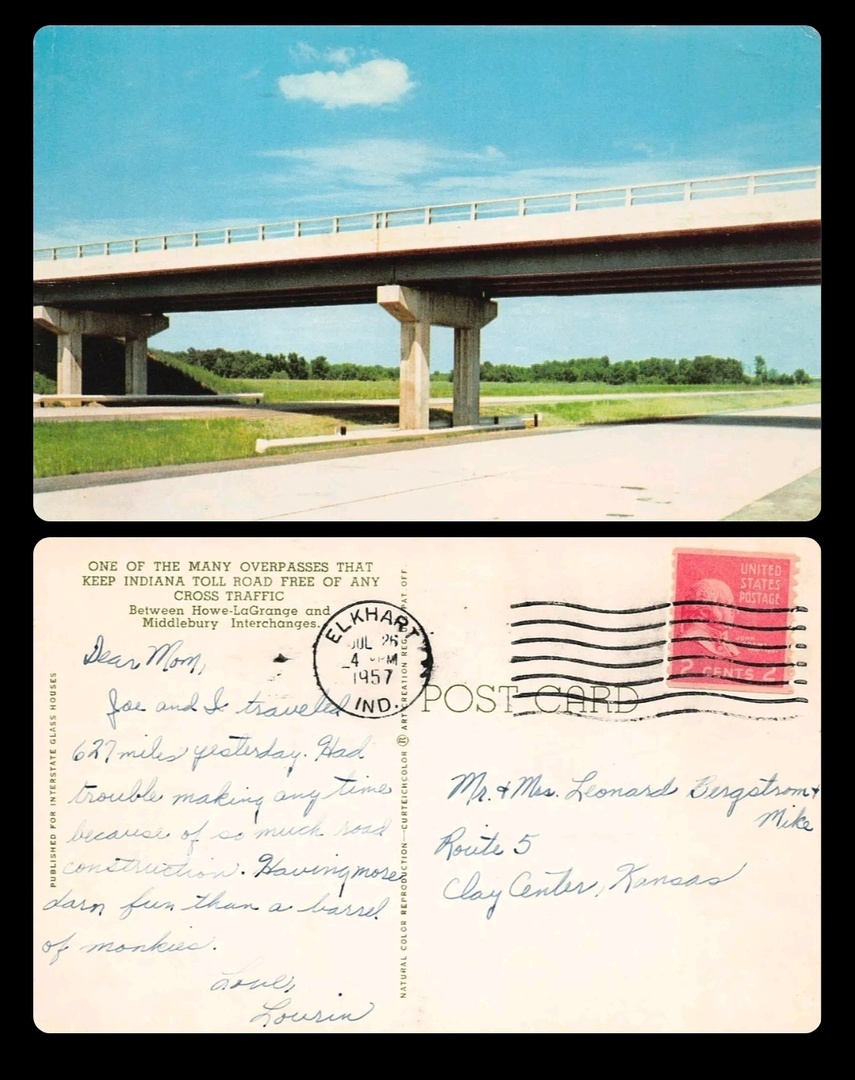 ONE OF THE MANY OVERPASSES THAT
KEEP INDIANA TOLL ROAD FREE OF ANY
CROSS TRAFFIC
Between Howe-LaGrange and
Middlebury Interchanges.
Dear Mom,
Joe and I traveled
627 miles yesterday. Had
trouble making any time
because of so much road
construction. Having more
darn fun than a barrel
of monkies.
Love,
Lourin
PUBLISHED FOR INTERSTATE GLASS HOUSES
NATURAL COLOR REPRODUCTION—CURTEICHCOLOR ® ART CREATION REG. PAT OFF.
ELKHART
JUL 26
4 PM
1957
IND.
UNITED
STATES
POSTAGE
JOHN
2 CENTS 2
POST CARD
Mr. & Mrs. Leonard Bergstrom &
Mike
Route 5
Clay Center, Kansas